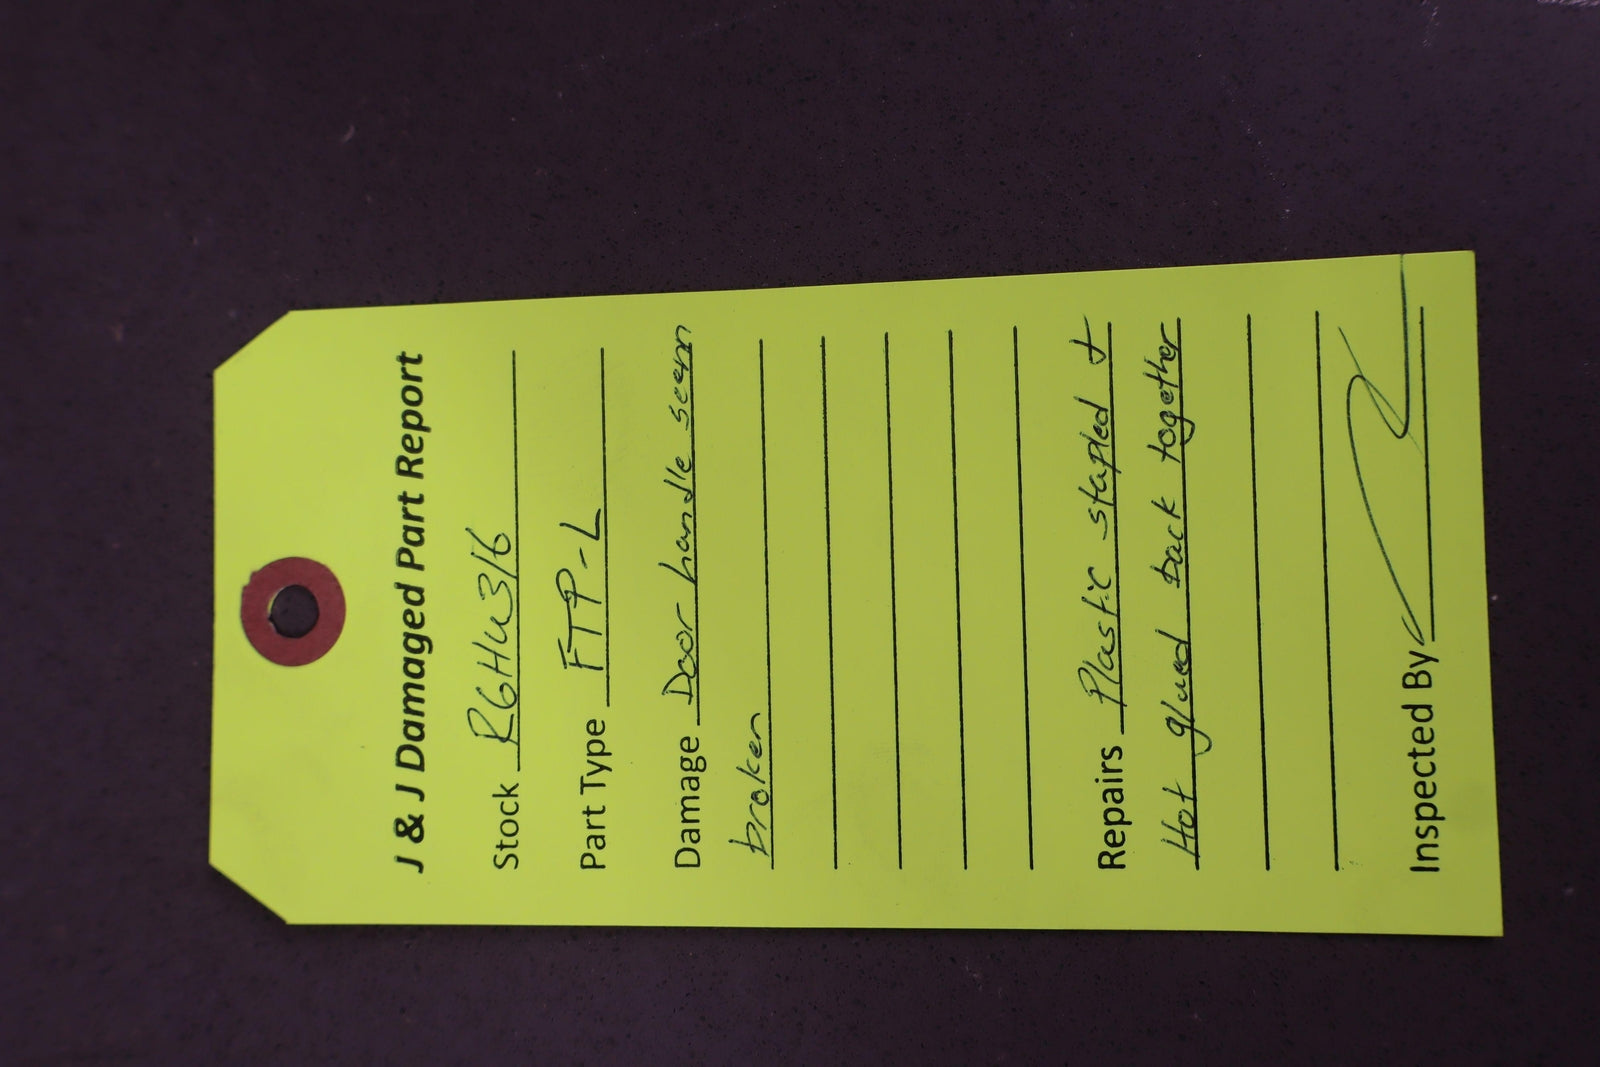 J & J Damaged Part Report
Stock R6HU316
Part Type FTP-L
Damage Door handle seem
broken
Repairs Plastic stapled +
Hot glued back together
Inspected By